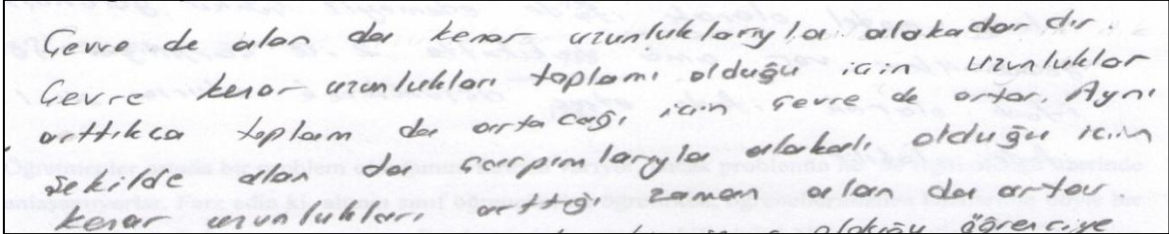 Çevre de alan da kenar uzunluklarıyla alakadardır.
Çevre kenar uzunlukları toplamı olduğu için uzunluklar
arttıkça toplam da artacağı için çevre de artar. Aynı
şekilde alan da çarpımlarıyla alakalı olduğu için
kenar uzunlukları arttığı zaman alan da artar
olduğu öğrenciye